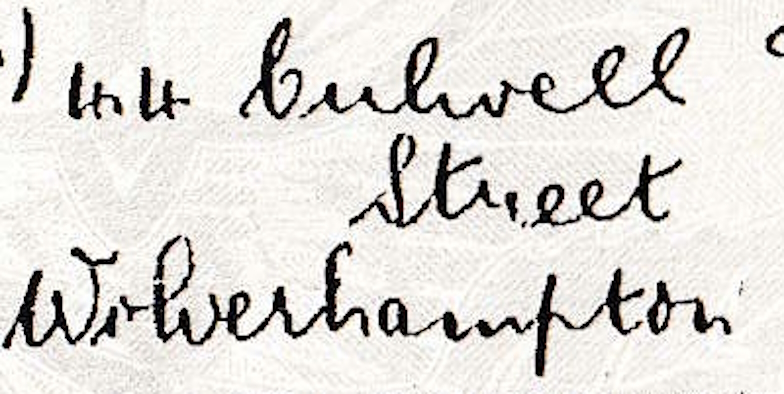 44 Culwell
Street
Wolverhampton